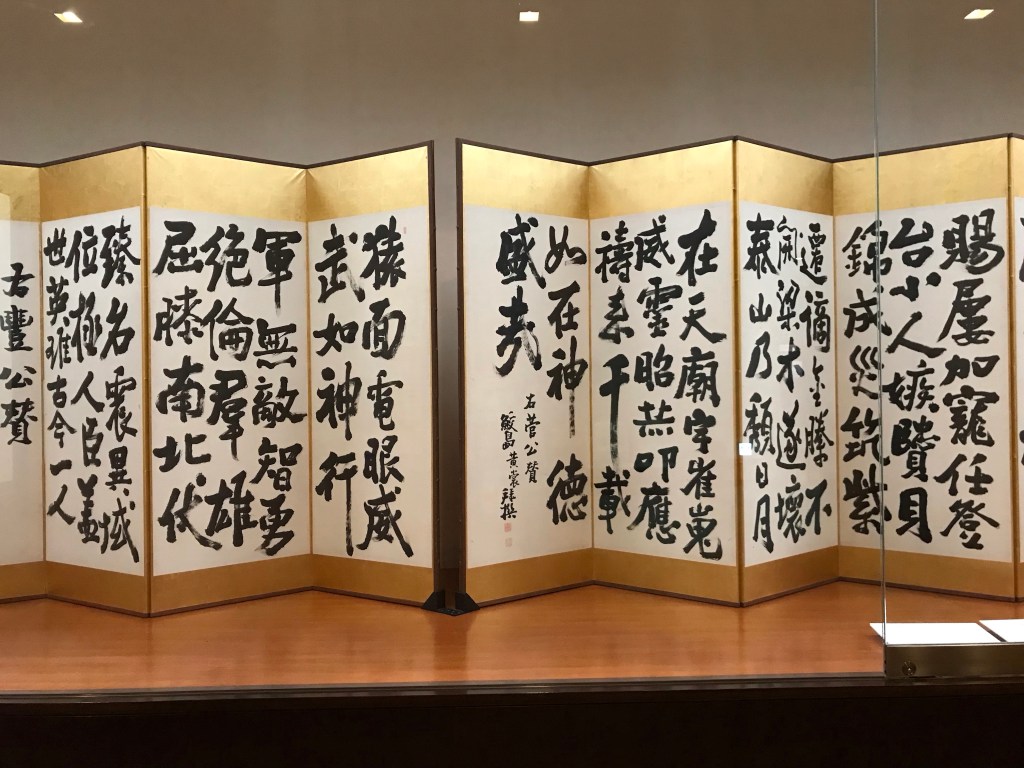 賜屢加寵任登
台小人嫉賢貝
錦成災筑紫
遷謫金縢不
開梁木遂壞
泰山乃頽日月
在天廟宇崔嵬
威靈昭赫叩應
禱千載
如在神德
盛哉
右菅公賛
黄裳拝撰
猿面電眼威
武如神行
軍無敵智勇
絶倫群雄
屈膝南北伏
臻名震異域
位極人臣蓋
世英雄古今一人
右豐公賛